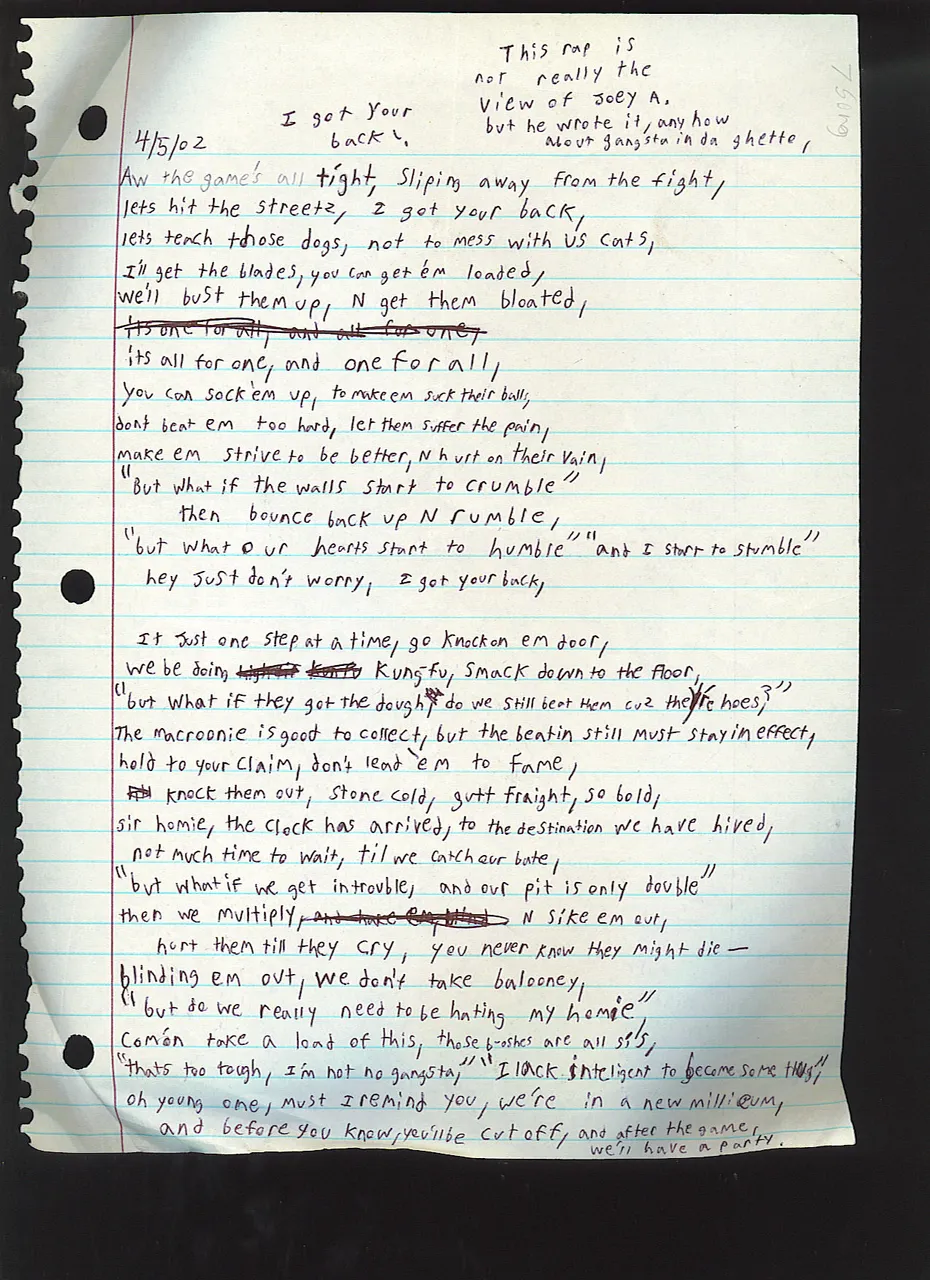 This rap is
not really the
view of Joey A.
but he wrote it, anyhow
about gangsta in da ghetto,
7 Song
I got your
back!
4/5/02
Aw the game's all tight, Sliping away from the fight,
lets hit the streetz, I got your back,
lets teach those dogs, not to mess with us cats,
I'll get the blades, you can get ém loaded,
we'll bust them up, N get them bloated,
its one for all, and all for one,
its all for one, and one for all,
you can sock'em up, to make em suck their balls,
dont beat em too hard, let them suffer the pain,
make em strive to be better, N hurt on their vain,
"But what if the walls start to crumble"
then bounce back up N rumble,
"but what our hearts start to humble" "and I start to stumble"
hey just don't worry, I got your back,
It just one step at a time, go knock on em door,
we be doing Kung-fu, smack down to the floor,
"but what if they got the dough, do we still beat them cuz they're hoes,?"
The macroonie is good to collect, but the beatin still must stay in effect,
hold to your claim, don't lead 'em to fame,
knock them out, stone cold, gutt fraight, so bold,
sir homie, the clock has arrived, to the destination we have hived,
not much time to wait, til we catch our bate,
"but what if we get in trouble, and our pit is only double"
then we multiply, N sike em out,
hurt them till they cry, you never know they might die —
blinding em out, we don't take balooney,
"but do we really need to be hating my homie"
Comón take a load of this, those b-oshes are all sis,
"thats too tough, I'm not no gangsta," "I lack inteligent to become some thug",
oh young one, must I remind you, we're in a new millieum,
and before you know, you'll be cut off, and after the game,
we'll have a party.